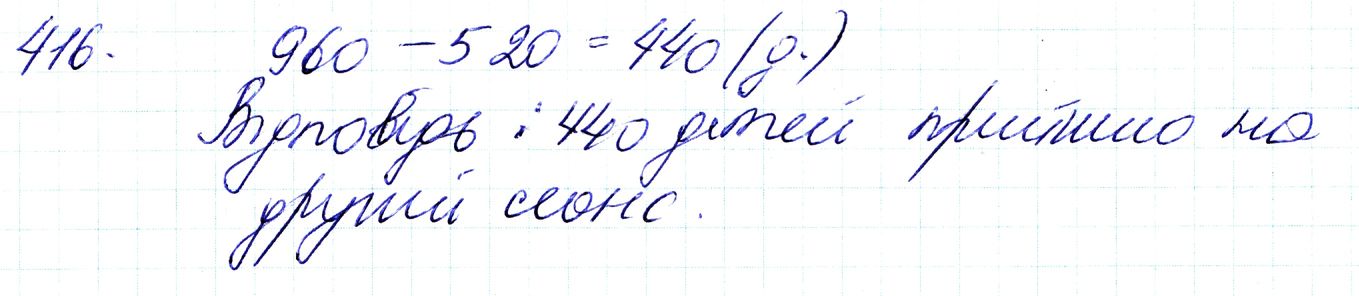 416. 960 - 520 = 440 (д.)
Відповідь : 440 дітей прийшло на
другий сеанс.